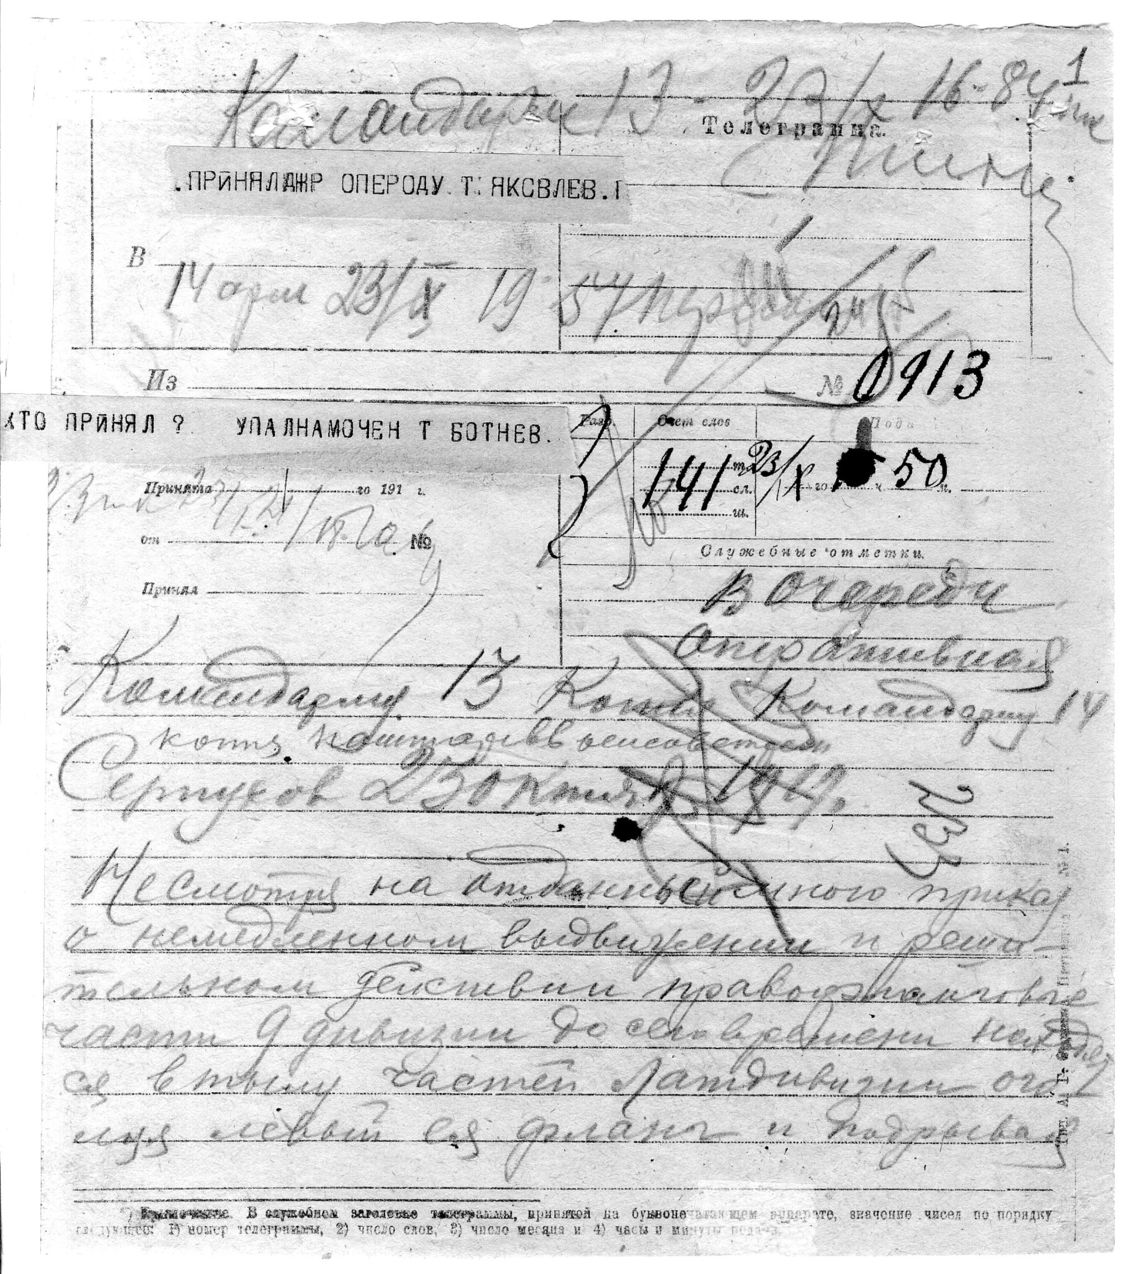 1
Командарм 13 - 23/X 16-84
Телеграмма.
.ПРИНЯЛ ДЖР ОПЕРОДУ Т. ЯКОВЛЕВ.
В
14 арм 23/X 19 54
24
Из
№ 0913
КТО ПРИНЯЛ ? УПАЛНАМОЧЕН Т БОТНЕВ.
Разр. Счет слов Пода
Принята го 191 г.
141 сл. 23/X го ч 50 м.
ш.
от №
Служебные отметки.
Принял
В очереди
оперативная
Командарму 13 Копия Командарму 14
копия наштарев военсоветам
Серпухов 23 октября 1919.
233
Несмотря на отданный мною приказ
о немедленном выдвижении и реши-
тельном действии правофланговые
части 9 дивизии до сего времени находят
ся в тылу частей Латдивизии ога
ляя левый ея фланг и подрывая
Примечание. В служебном заголовке телеграммы, принятой на буквопечатающем аппарате, значение чисел по порядку
следующее: 1) номер телеграммы, 2) число слов, 3) число месяца и 4) часы и минуты подачи.